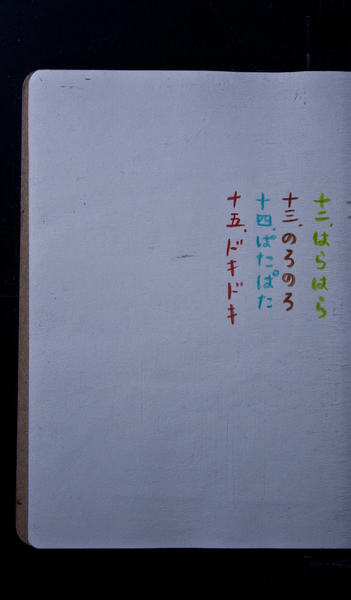 十二、はらはら
十三、のろのろ
十四、ぱたぱた
十五、ドキドキ